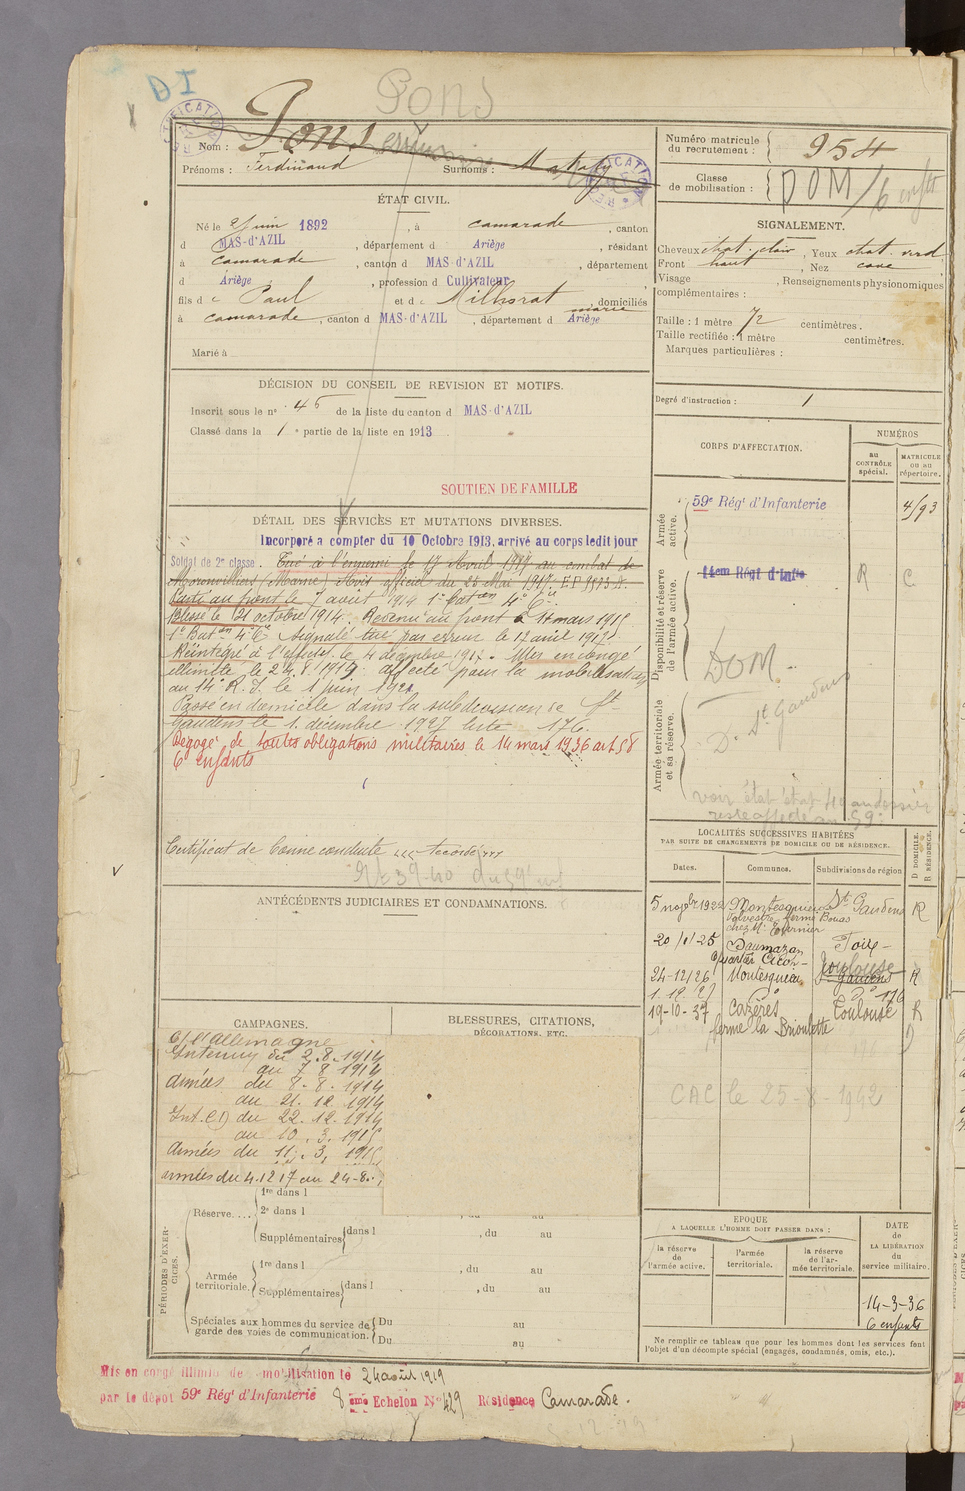 DI
Pons
Nom : Pons
Prénoms : Ferdinand Surnoms :
Numéro matricule du recrutement : 954
Classe de mobilisation : DOM / 6 enfts
ÉTAT CIVIL.
Né le 2 juin 1892, à camarade, canton
d MAS-d'AZIL, département d Ariège, résidant
à camarade, canton d MAS-d'AZIL, département
d Ariège, profession d Cultivateur
fils de Paul et de Milhorat marie, domiciliés
à camarade, canton d MAS-d'AZIL, département d Ariège
Marié à
SIGNALEMENT.
Cheveux chat. clair, Yeux chat. verd
Front haut, Nez cave
Visage , Renseignements physionomiques
complémentaires :
Taille : 1 mètre 72 centimètres.
Taille rectifiée : 1 mètre centimètres.
Marques particulières :
Degré d'instruction : 1
DÉCISION DU CONSEIL DE REVISION ET MOTIFS.
Inscrit sous le n° 45 de la liste du canton d MAS-d'AZIL
Classé dans la 1e partie de la liste en 1913
SOUTIEN DE FAMILLE
DÉTAIL DES SERVICES ET MUTATIONS DIVERSES.
Incorporé a compter du 10 Octobre 1913, arrivé au corps ledit jour
Soldat de 2e classe. Tué à l'ennemi le 17 Avril 1917 au combat de
Moronvilliers (Marne) Avis officiel du 28 Mai 1917
Parti au front le 7 août 1914 1er Baton 4e Cie
Blessé le 21 octobre 1914. Revenu au front 11 mars 1915
1er Baton 4e Cie Signalé tué par erreur le 17 avril 1917
Réintégré à l'effectif le 4 décembre 1917. Mis en congé
illimité le 24.8.1919 affecté pour la mobilisation
au 14e R.I. le 1 juin 192
Passé en domicile dans la subdivision de St-
Gaudens le 1. décembre 1927 liste 176.
Dégagé de toutes obligations militaires le 14 mars 1936 art 58
6 enfants
Certificat de bonne conduite Accordé
CORPS D'AFFECTATION.
NUMÉROS
au CONTRÔLE spécial.
MATRICULE ou au répertoire.
Armée active.
59e Régt d'Infanterie 4193
Disponibilité et réserve de l'armée active.
14em Régt d'Infie R C
DOM.
D. St Gaudens
Armée territoriale et sa réserve.
LOCALITÉS SUCCESSIVES HABITÉES
PAR SUITE DE CHANGEMENTS DE DOMICILE OU DE RÉSIDENCE.
Dates. Communes. Subdivisions de région
D DOMICILE. R RÉSIDENCE.
5 nov 1922 Montesquieu St Gaudens R
Volvestre ferme Bouas
chez Mr Tournier
20/1/25 Daumazan Foix
24-12/26 Montesquieu Toulouse R
19-10-37 Cazères Toulouse R
ferme la Brioulette D
CAC le 25-8-1942
ANTÉCÉDENTS JUDICIAIRES ET CONDAMNATIONS.
CAMPAGNES.
BLESSURES, CITATIONS,
DÉCORATIONS, ETC.
C/ l'Allemagne
Intérieur du 2.8.1914
au 7 8 1914
Armées du 8.8.1914
au 21.12.1914
Int.(C1) du 22.12.1914
au 10.3.1915
Armées du 11.3.1915
armées du 4.12 17 au 24-8.
PÉRIODES D'EXERCICES.
Réserve....
1re dans l
2e dans l , du au
Supplémentaires dans l , du au
Armée territoriale.
1re dans l , du au
Supplémentaires dans l , du au
Spéciales aux hommes du service de garde des voies de communication.
Du au
Du au
EPOQUE
A LAQUELLE L'HOMME DOIT PASSER DANS :
la réserve de l'armée active.
l'armée territoriale.
la réserve de l'armée territoriale.
DATE de LA LIBÉRATION du service militaire.
14-3-36
6 enfants
Ne remplir ce tableau que pour les hommes dont les services font
l'objet d'un décompte spécial (engagés, condamnés, omis, etc.).
Mis en congé illimité de mobilisation le 24 août 1919
par le dépôt 59e Régt d'Infanterie 8 ème Echelon N° 429 Résidence Camarade.